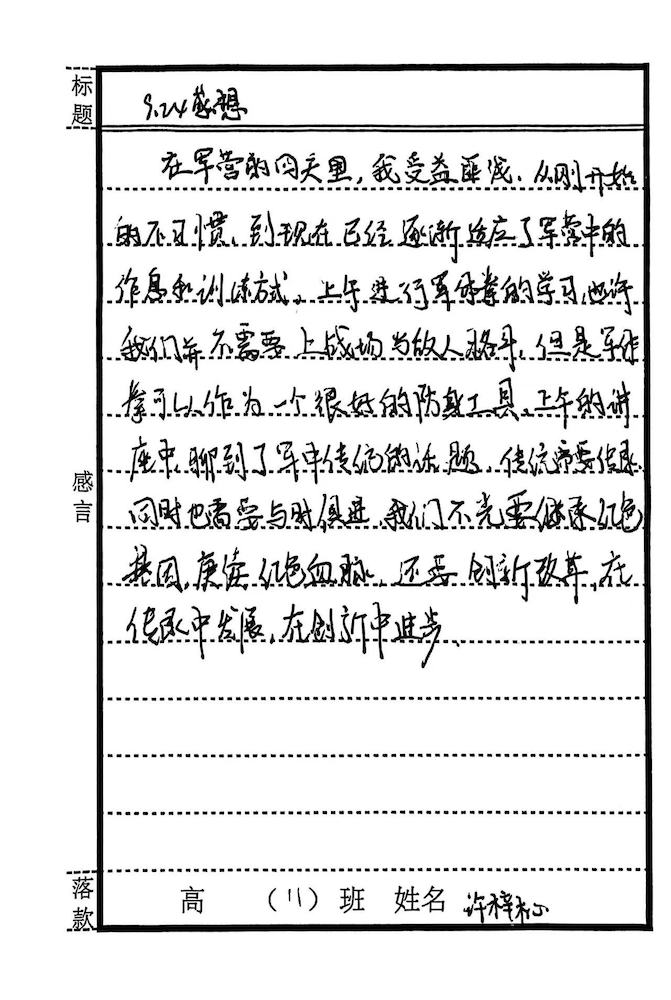 标题
9.24感想
在军营的四天里，我受益匪浅．从刚开始
的不习惯，到现在已经逐渐适应了军营中的
作息和训练方式。上午进行军体拳的学习，也许
我们并不需要上战场与敌人格斗，但是军体
拳可以作为一个很好的防身工具。上午的讲
座中，聊到了军中传统的话题，传统需要传承
同时也需要与时俱进，我们不光要继承红色
基因，赓续红色血脉，还要创新改革，在
传承中发展，在创新中进步．
感言
落款
高 （11）班 姓名 许梓